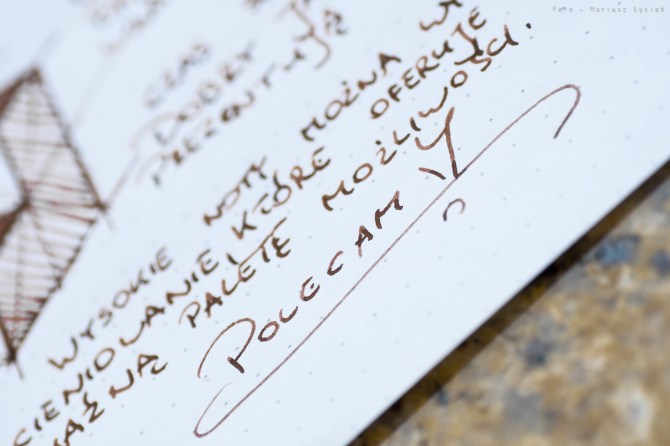 Foto - Mariusz Łysień
CZAS
DOBRY
PREZENTUJĄ
WYSOKIE NOTY MOŻNA
CIENIOWANIE, KTÓRE OFERUJE
PALETĘ MOŻLIWOŚCI.
POLECAM